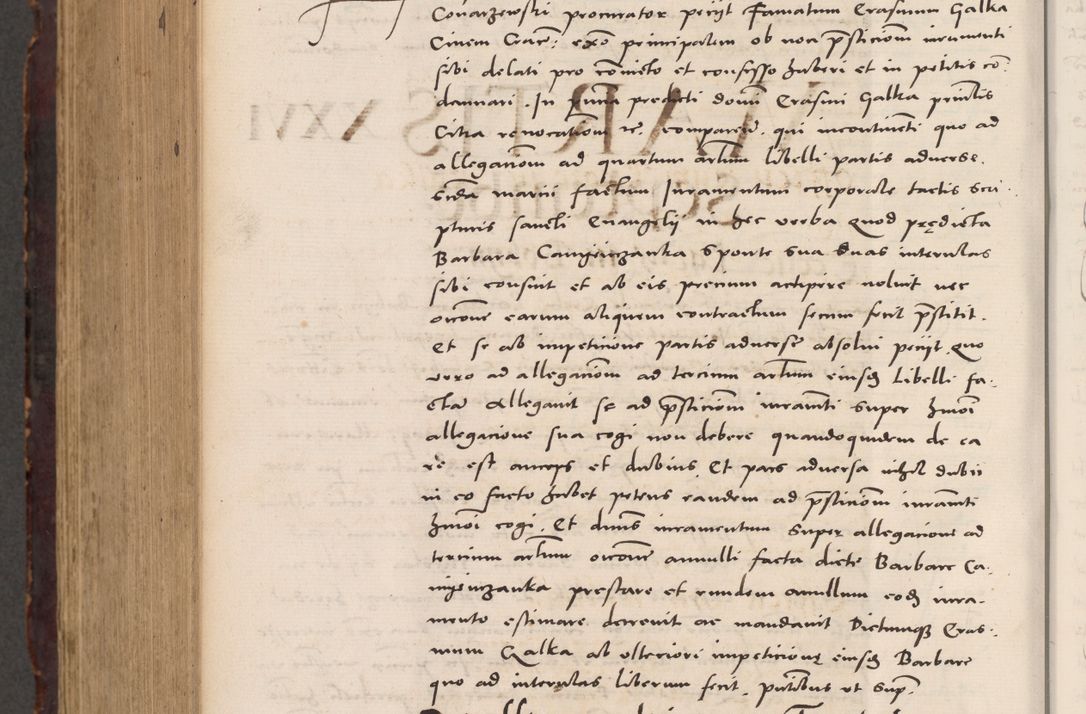 Conarzewski procurator peciit Famatum Erasmum Galka
Civem Crac: exõ principalem ob non p̃sticiom̃ iuramenti
sibi delati pro cõmicto et confesso haberi et in petitis cõ:
damnari. In p̃ntia predicti domĩ Erasmi Galka prin̄lis
Citra revocatiom̃ r̃c. comparen̄. qui incontinẽti quo ad
allegatiom̃ ad quartum art̃lum libelli partis adverse.
eiusdẽ manu factum Iuramentum corporale tactis scri
pturis sancti Evangelij in hec verba Quod prędicta
Barbara sponte sua duas interulas
sibi consuit et ab eis precium accipere noluit nec
occõne earum aliquem contractum secum fecit p̃stitit.
Et se ab impeticione partis adverse absolvi peciit. Quo
vero ad allegaciom̃ ad tercium art̃lum eiusdẽ libelli fa:
cta Allegavit se ad p̃sticiom̃ iuram̃ti super hmõi
allegacione sua cogi non debere quandoquidem de ea
re est anceps et dubius Et pars adversa nihil dubii
in eo facto habet petens eandem ad p̃sticiom̃ iuram̃ti
hmõi cogi. Et dnũs iuramentum super allegacione ad
tercium art̃lum occõne annulli facta dicte Barbare Ca:
prestare et eundem anullum eodẽ iura:
mento estimare decrevit ac mandavit Dictumq̃ Eras:
mum Galka ab ulteriori impeticionę eiusdẽ Barbare
quo ad interulas liberum fecit. p̃ntibus ut sup̃.